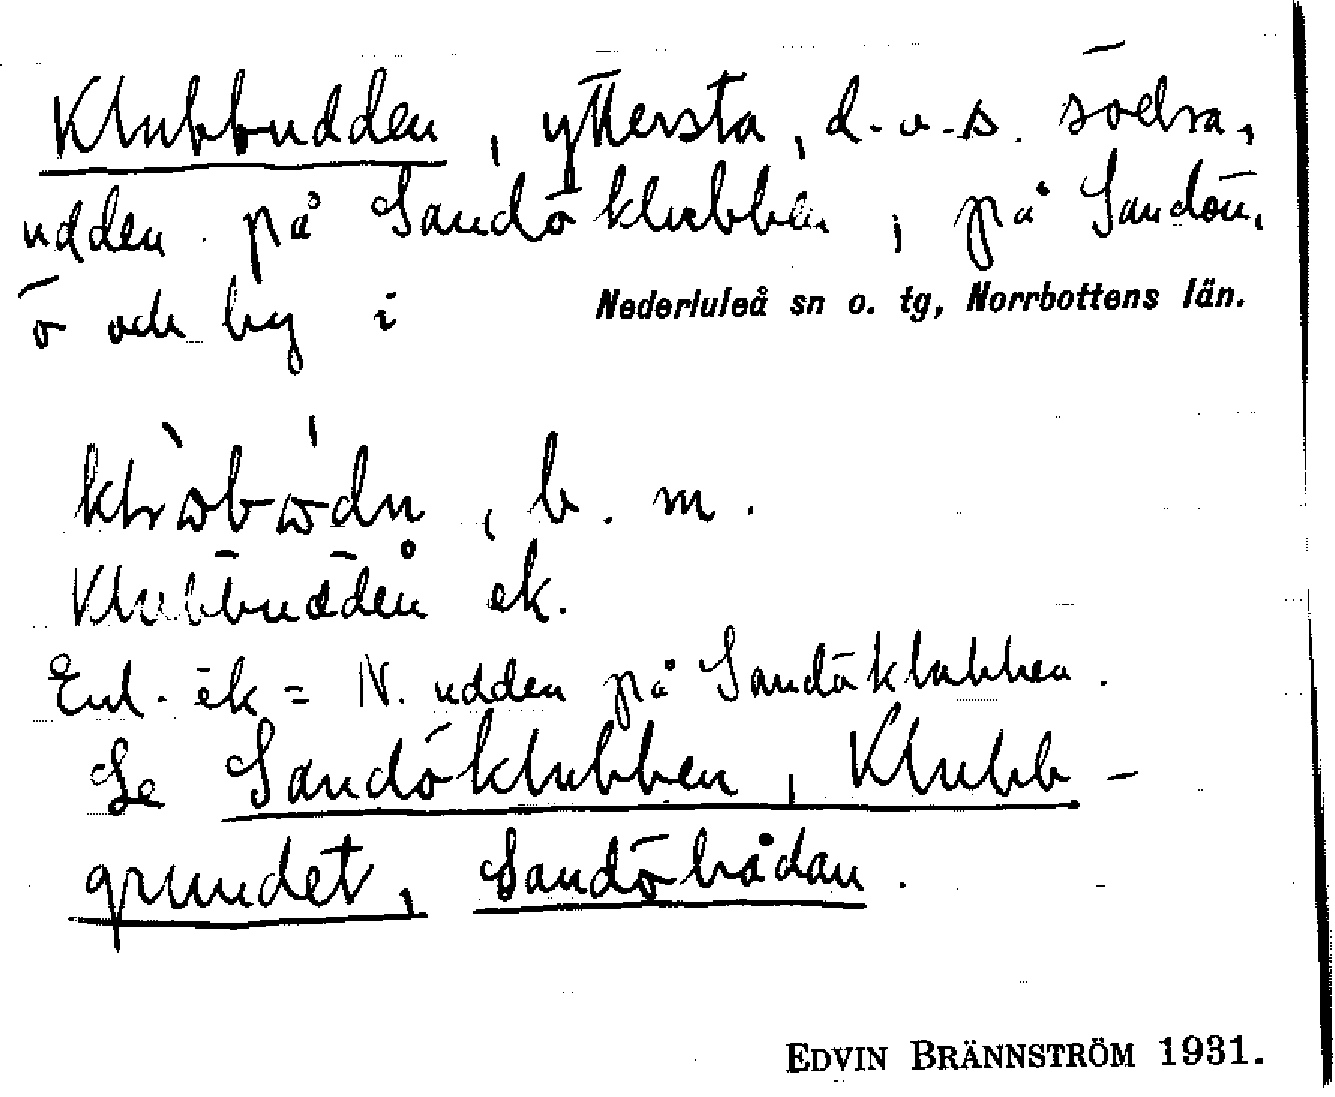 Klubbudden, yttersta, d.v.s. södra,
udden på Sandöklubben, på Sandön,
ö och by i Nederluleå sn o. tg, Norrbottens län.
b. m.
Klubbudden ek.
Enl. ek = N. udden på Sandöklubben.
Se Sandöklubben, Klubb-
grundet, Sandöbådan.
EDVIN BRÄNNSTRÖM 1931.